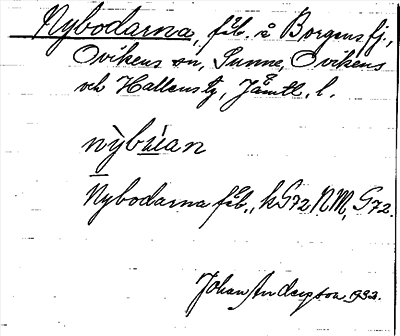 Nybodarna, fäb. å Borgens fj.,
Ovikens sn, Sunne, Ovikens
och Hallens tg, Jämtl. l.
nỳbu̱an
Nybodarna fäb., k G72 NM, G72.
Johan Anderson 1932.